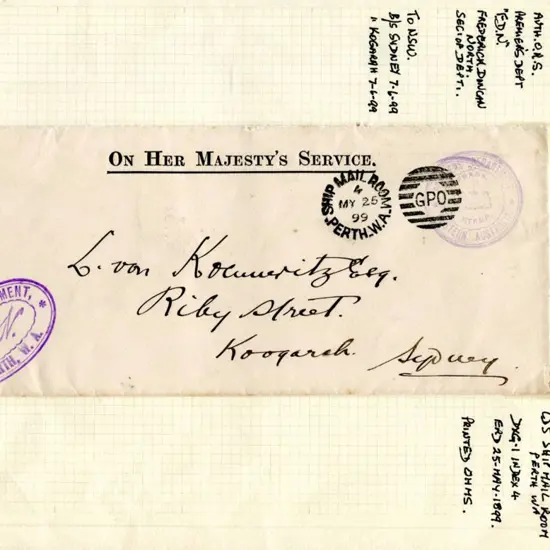 AUTH. O.R.S.
PREMIERS DEPT
"E.D.N."
FREDERICK DUNCAN
NORTH.
SEC. OF DEPT..
TO NSW.
B/S SYDNEY 7-6-99
" KOGARAH 7-6-99
ON HER MAJESTY'S SERVICE.
SHIP MAIL ROOM
4
MY 25
99
PERTH. W.A.
GPO
L. von Koennewitz Esq.
Riby Street.
Koogarah.
Sydney
MENT,
N.
RTH, W. A.
SHIP MAIL ROOM
PERTH WA
DXG-1 INDEX 4
ERD 25-MAY-1899.
PRINTED OHMS.